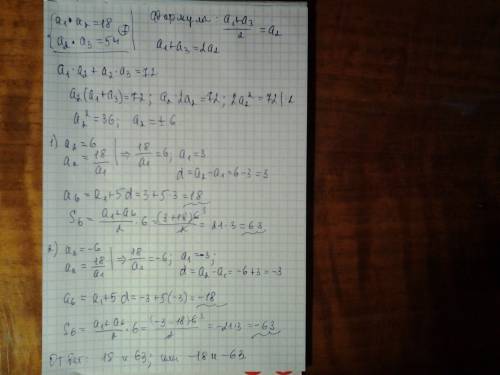 {a₁·a₂=18 | ⊕ Формула: (a₁+a₃)/2 = a₂
a₂·a₃=54 | a₁+a₃=2a₂
a₁·a₂+a₂·a₃=72
a₂(a₁+a₃)=72; a₂·2a₂=72; 2a₂²=72|:2
a₂²=36; a₂=±6
1) a₂=6
a₂=18/a₁ | ⇒ 18/a₁=6; a₁=3
d=a₂-a₁=6-3=3
a₆=a₁+5d=3+5·3=18
S₆=(a₁+a₆)/2·6=(3+18)6³/2=21·3=63
2) a₂=-6
a₂=18/a₁ | ⇒ 18/a₁=-6; a₁=-3;
d=a₂-a₁=-6+3=-3
a₆=a₁+5d=-3+5(-3)=-18
S₆=(a₁+a₆)/2·6=(-3-18)6³/2=-21·3=-63
Ответ: 18 и 63; или -18 и -63.